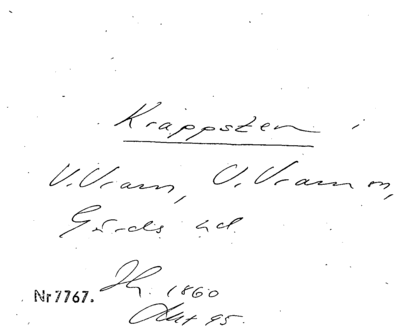 Krappsten i
V. Vram, V. Vram sn,
Gärds hd
Nr 7767. 1860
95.